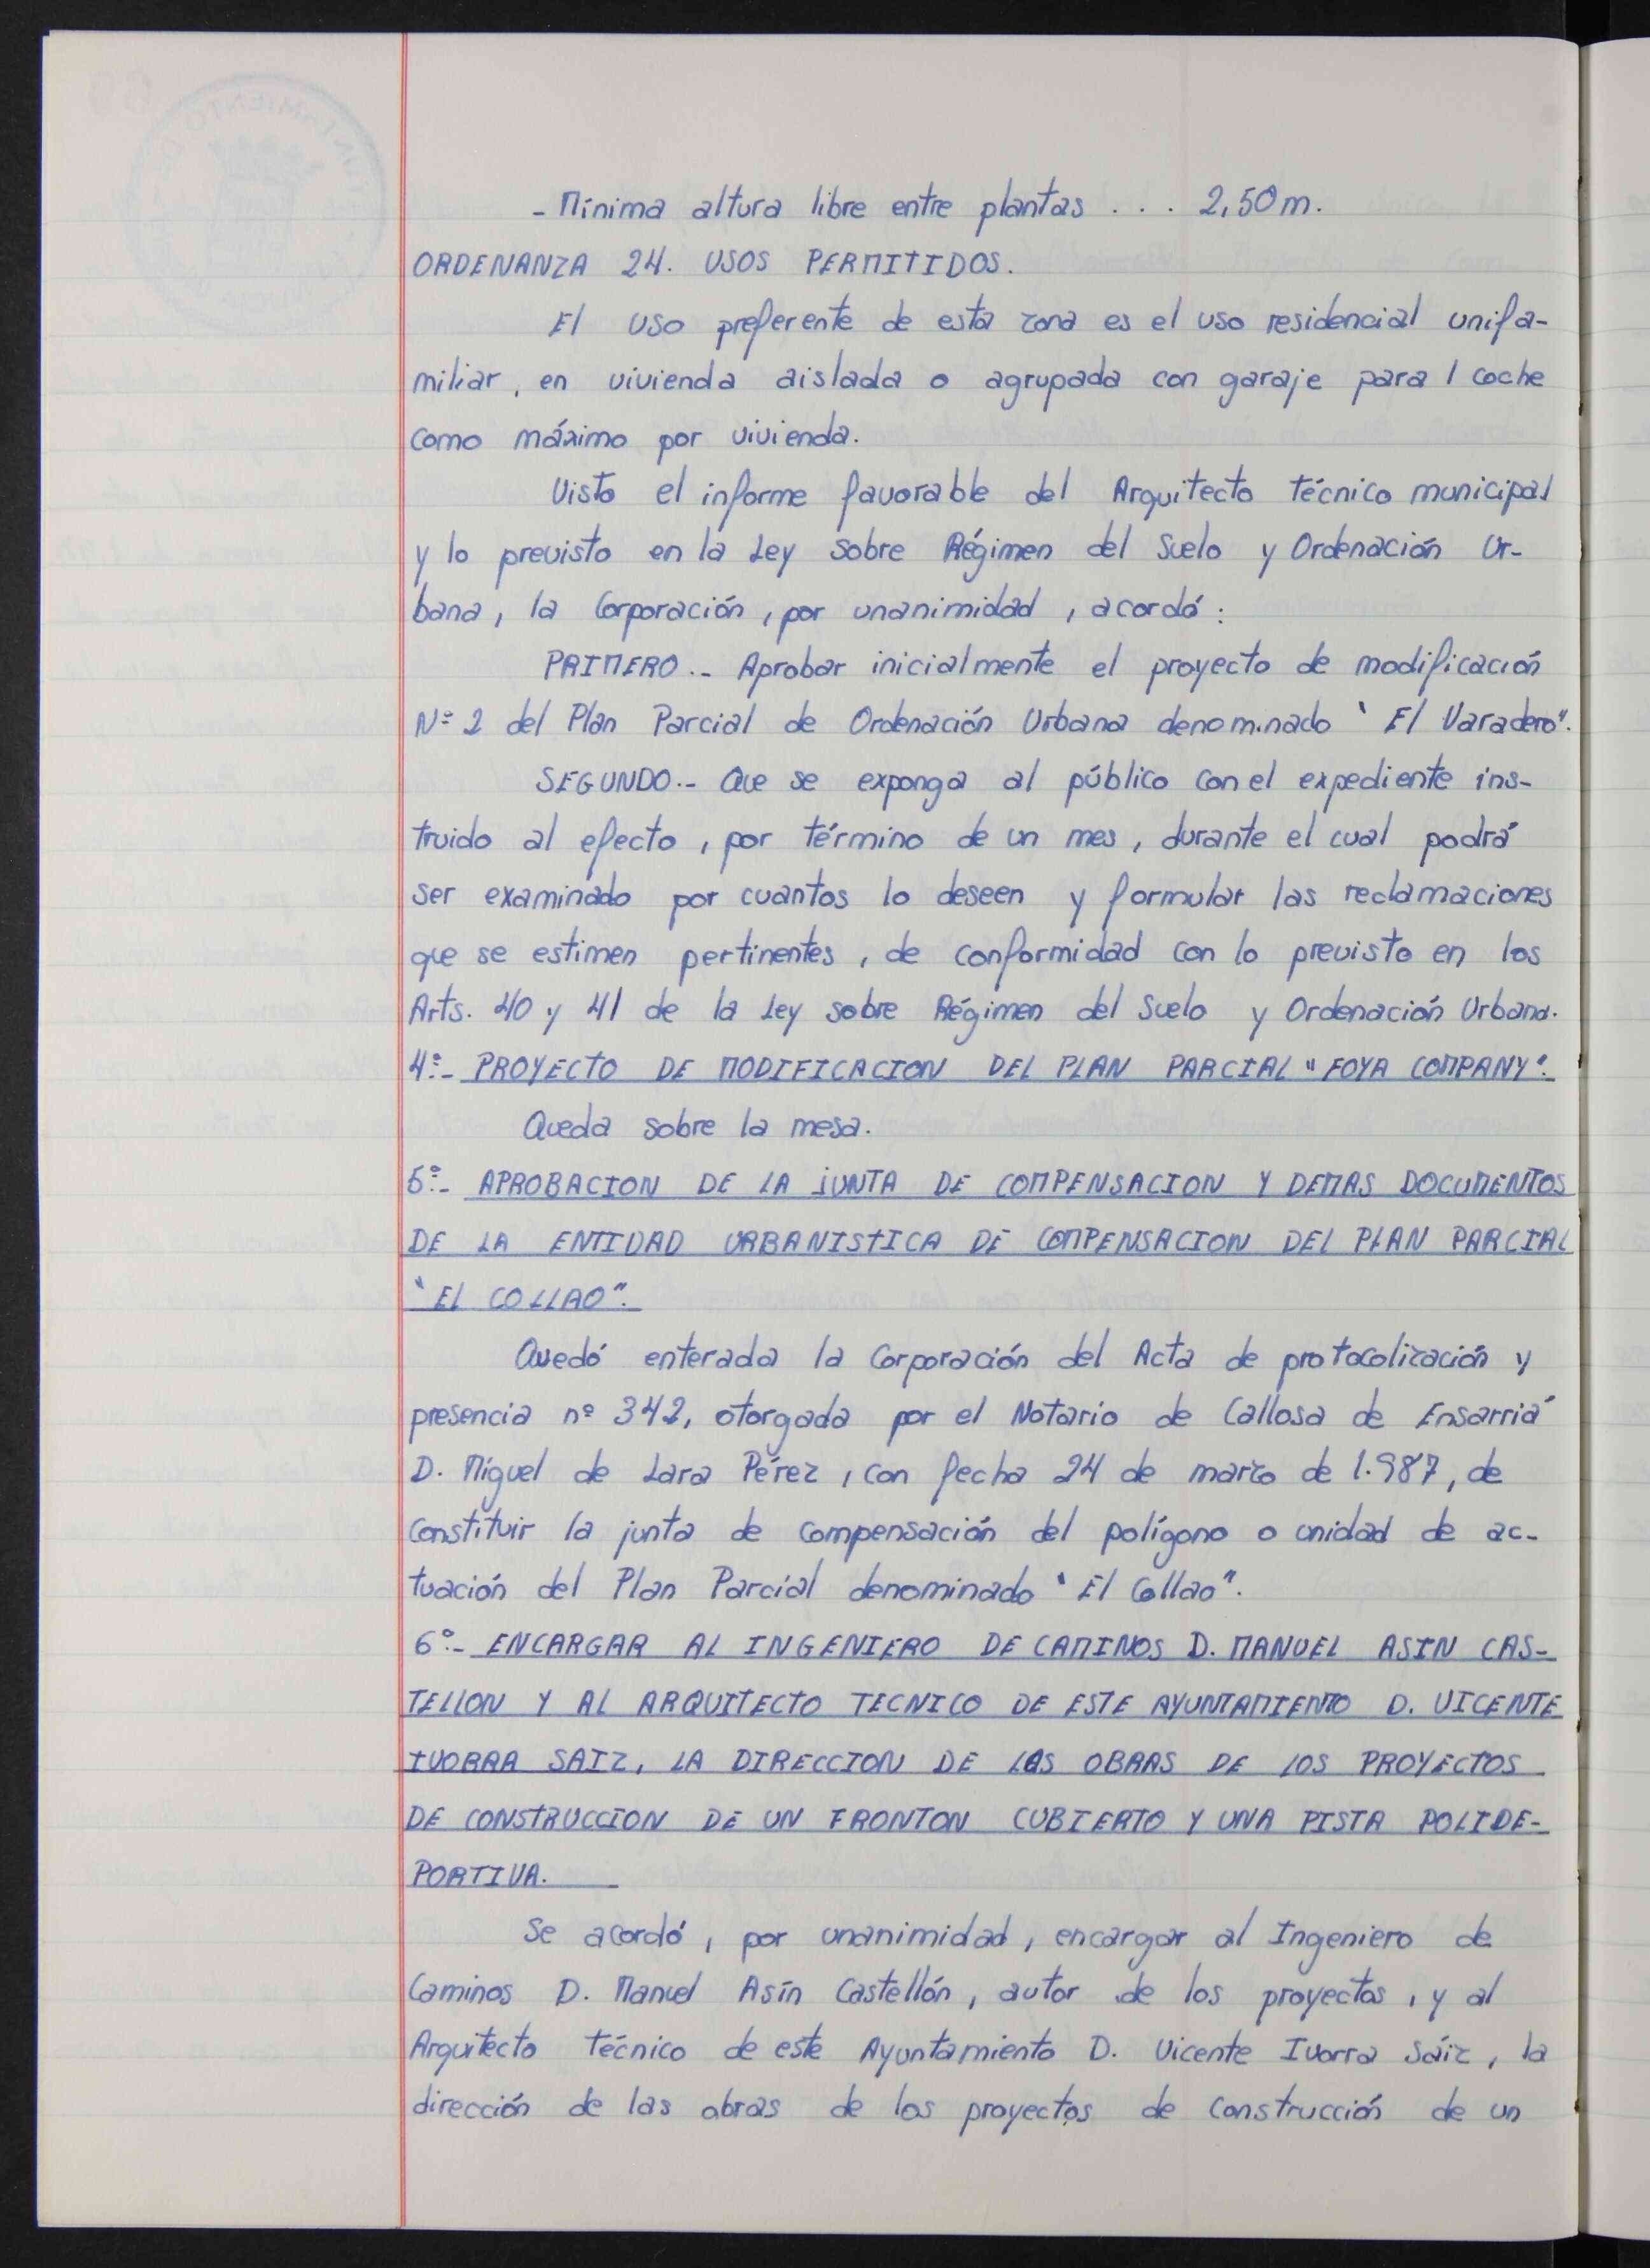 - Mínima altura libre entre plantas . . . 2,50 m.
ORDENANZA 24. USOS PERMITIDOS.
El uso preferente de esta zona es el uso residencial unifa-
miliar, en vivienda aislada o agrupada con garaje para 1 coche
como máximo por vivienda.
Visto el informe favorable del Arquitecto técnico municipal
y lo previsto en la Ley sobre Régimen del Suelo y Ordenación Ur-
bana, la Corporación, por unanimidad, acordó:
PRIMERO.- Aprobar inicialmente el proyecto de modificación
Nº 2 del Plan Parcial de Ordenación Urbana denominado "El Varadero".
SEGUNDO.- Que se exponga al público con el expediente ins-
truido al efecto, por término de un mes, durante el cual podrá
ser examinado por cuantos lo deseen y formular las reclamaciones
que se estimen pertinentes, de conformidad con lo previsto en los
Arts. 40 y 41 de la Ley sobre Régimen del Suelo y Ordenación Urbana.
4º.- PROYECTO DE MODIFICACION DEL PLAN PARCIAL "FOYA COMPANY".
Queda sobre la mesa.
5º.- APROBACION DE LA JUNTA DE COMPENSACION Y DEMAS DOCUMENTOS
DE LA ENTIDAD URBANISTICA DE COMPENSACION DEL PLAN PARCIAL
"EL COLLAO".
Quedó enterada la Corporación del Acta de protocolización y
presencia nº 342, otorgada por el Notario de Callosa de Ensarriá
D. Míguel de Lara Pérez, con fecha 24 de marzo de 1.987, de
constituir la junta de compensación del polígono o unidad de ac-
tuación del Plan Parcial denominado "El Collao".
6º.- ENCARGAR AL INGENIERO DE CAMINOS D. MANUEL ASIN CAS-
TELLON Y AL ARQUITECTO TECNICO DE ESTE AYUNTAMIENTO D. VICENTE
IVORRA SAIZ, LA DIRECCION DE LAS OBRAS DE LOS PROYECTOS
DE CONSTRUCCION DE UN FRONTON CUBIERTO Y UNA PISTA POLIDE-
PORTIVA.
Se acordó, por unanimidad, encargar al Ingeniero de
Caminos D. Manuel Asín Castellón, autor de los proyectos, y al
Arquitecto técnico de este Ayuntamiento D. Vicente Ivorra Sáiz, la
dirección de las obras de los proyectos de construcción de un